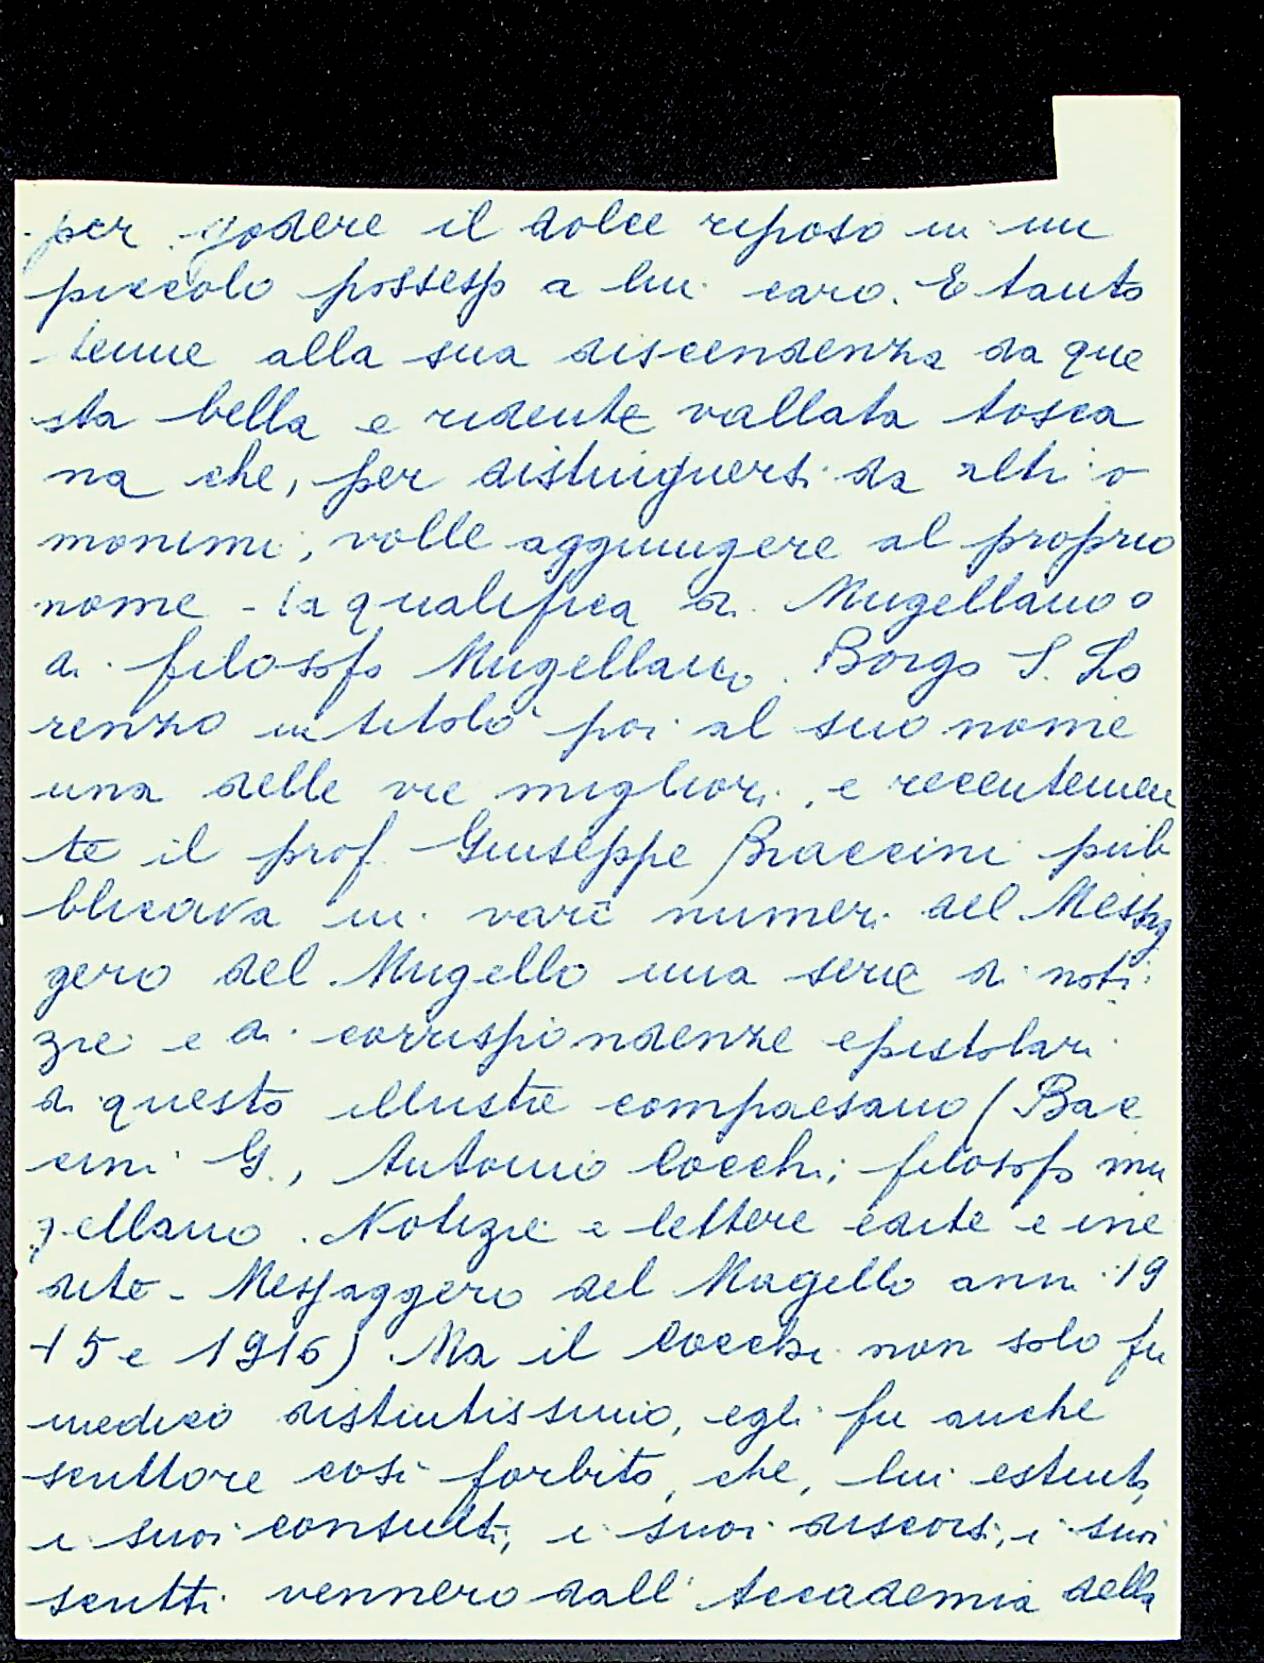 per godere il dolce riposo in un
piccolo possesso a lui caro. E tanto
tenne alla sua discendenza da que
sta bella e ridente vallata tosca
na che, per distinguersi da altri o
monimi, volle aggiungere al proprio
nome - la qualifica di Mugellano o
di filosofo Mugellano. Borgo S. Lo
renzo intitolò poi al suo nome
una delle vie migliori, e recentemen
te il prof. Giuseppe Braccini pub
blicava in vari numeri del Messag
gero del Mugello una serie di noti
zie e di corrispondenze epistolari
di questo illustre compaesano (Bac
cini G., Antonio Cocchi; filosofo mu
gellano. Notizie e lettere edite e ine
dite - Messaggero del Mugello anni 19
15 e 1916) Ma il Cocchi non solo fu
medico distintissimo, egli fu anche
scrittore così forbito, che, lui estinto,
i suoi consulti, i suoi discorsi, i suoi
scritti vennero dall'Accademia della